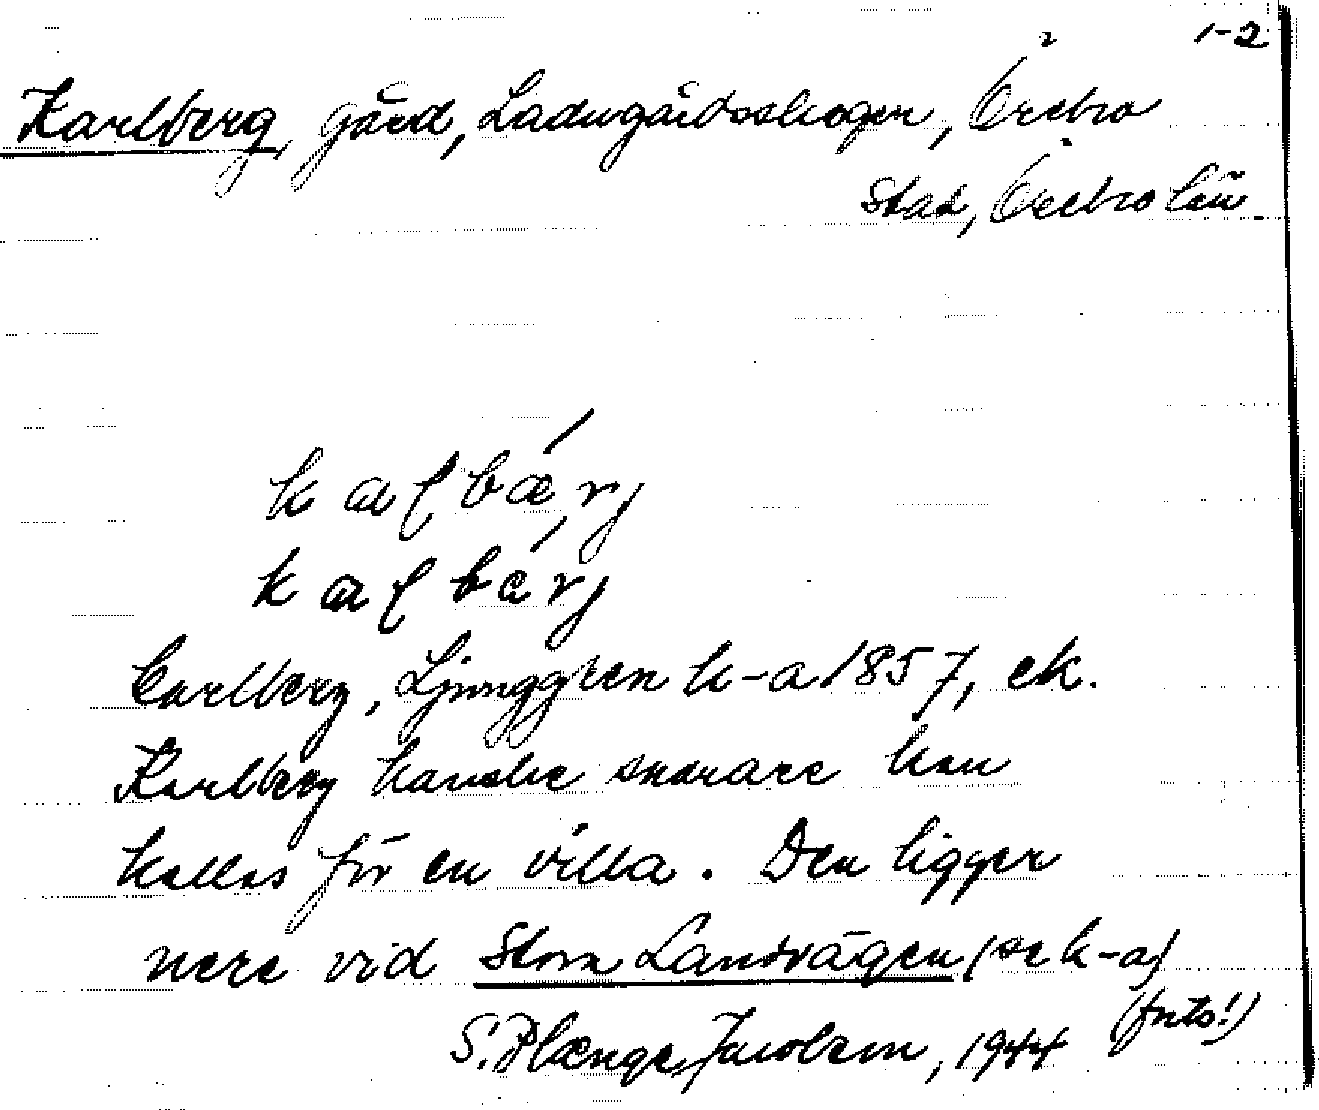 1-2
Karlberg, gård, Ladugårdsskogen, Örebro
stad, Örebro län.
kaɽbǽrj
kaɽbérj
Carlberg, Ljunggren k-a 1857, ek.
Karlberg kanske snarare kan
kallas för en villa. Den ligger
nere vid Stora Landsvägen (se k-a)
(forts!)
S. Plænge Jacobson, 1944